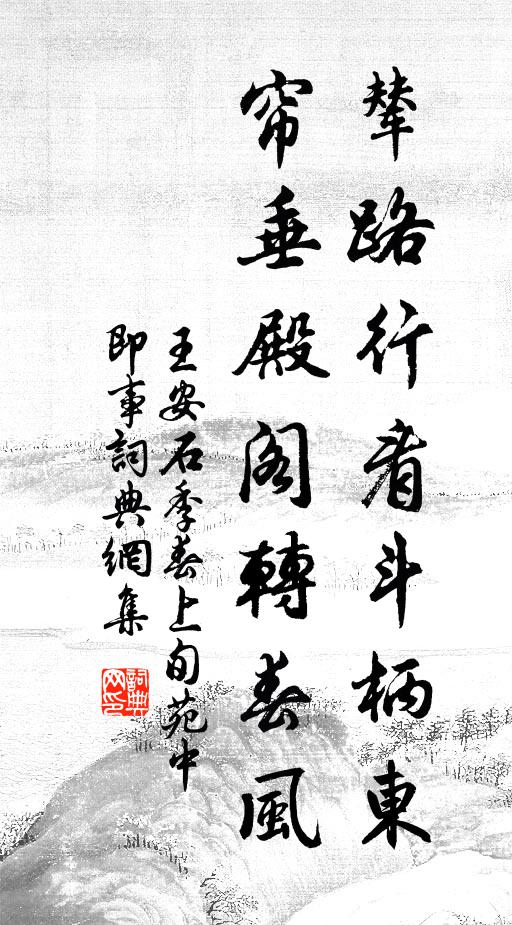 輦路行看斗柄東
帘垂殿閣轉春風
王安石季春上旬苑中
即事詞典網集
詞典網印